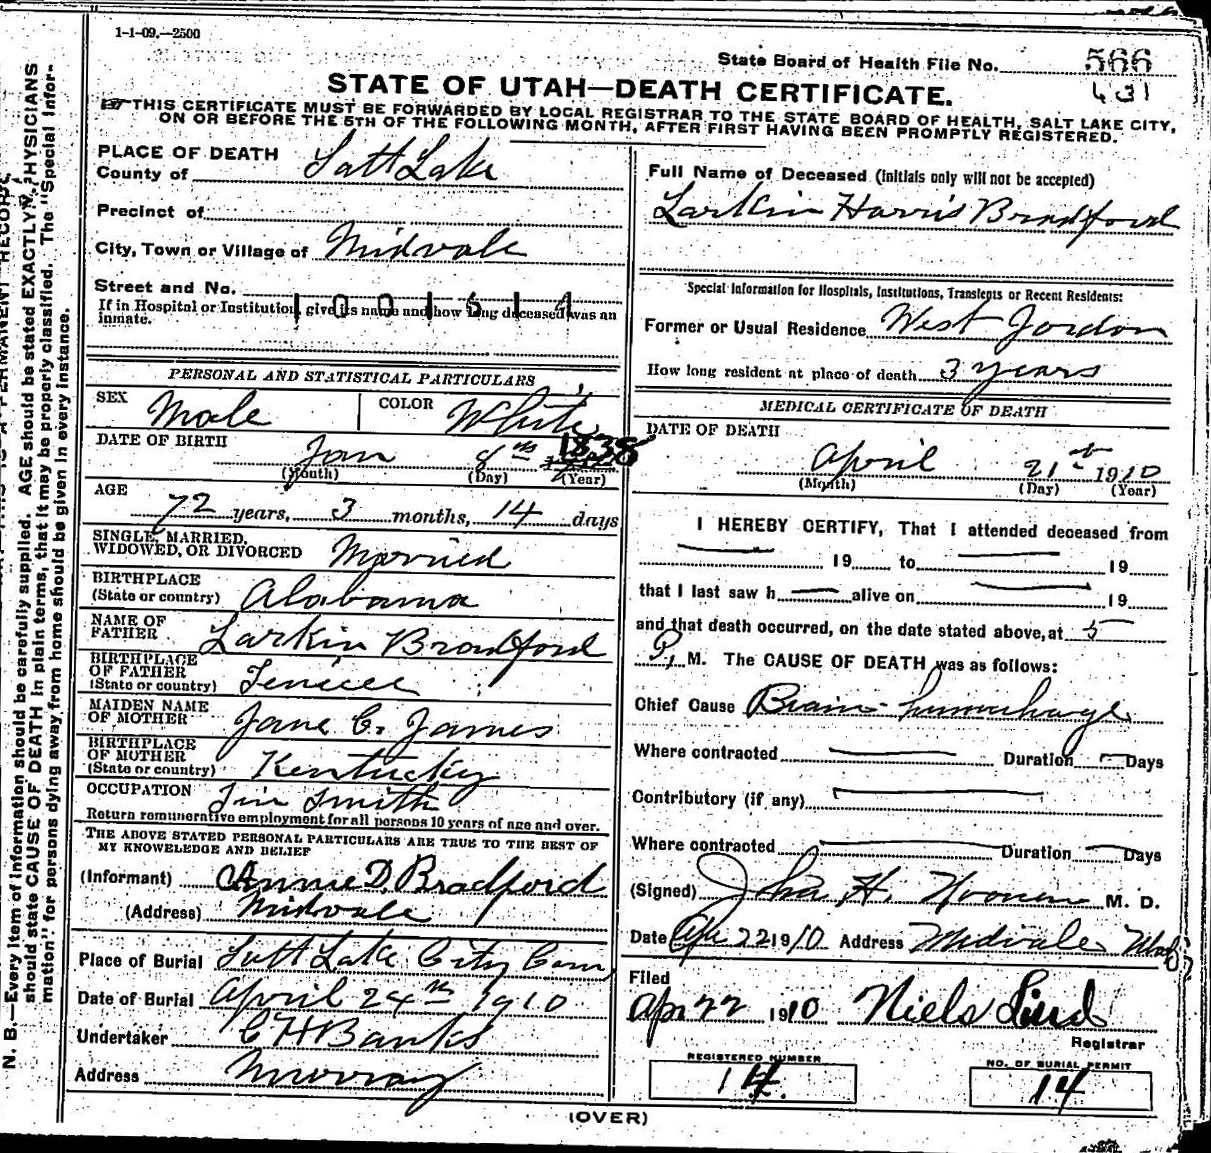 1-1-09.—2500
State Board of Health File No. 566
431
STATE OF UTAH—DEATH CERTIFICATE.
THIS CERTIFICATE MUST BE FORWARDED BY LOCAL REGISTRAR TO THE STATE BOARD OF HEALTH, SALT LAKE CITY,
ON OR BEFORE THE 5TH OF THE FOLLOWING MONTH, AFTER FIRST HAVING BEEN PROMPTLY REGISTERED.
PLACE OF DEATH
County of Salt Lake
Precinct of
City, Town or Village of Midvale
Street and No.
1001514
If in Hospital or Institution, give its name and how long deceased was an
inmate.
PERSONAL AND STATISTICAL PARTICULARS
SEX Male COLOR White
DATE OF BIRTH Jan 8th 1838
(Month) (Day) (Year)
AGE
72 years, 3 months, 14 days
SINGLE, MARRIED,
WIDOWED, OR DIVORCED Married
BIRTHPLACE
(State or country) Alabama
NAME OF
FATHER Larkin Bradford
BIRTHPLACE
OF FATHER
(State or country)
MAIDEN NAME
OF MOTHER Jane C. James
BIRTHPLACE
OF MOTHER
(State or country) Kentucky
OCCUPATION Tin Smith
Return remunerative employment for all persons 10 years of age and over.
THE ABOVE STATED PERSONAL PARTICULARS ARE TRUE TO THE BEST OF
MY KNOWELEDGE AND BELIEF
(Informant) Annie D. Bradford
(Address) Midvale
Place of Burial Salt Lake City Cem
Date of Burial April 24th 1910
Undertaker C H Banks
Address Murray
Full Name of Deceased (Initials only will not be accepted)
Larkin Harris Bradford
Special Information for Hospitals, Institutions, Transients or Recent Residents:
Former or Usual Residence West Jordon
How long resident at place of death 3 years
MEDICAL CERTIFICATE OF DEATH
DATE OF DEATH
April 21 1910
(Month) (Day) (Year)
I HEREBY CERTIFY, That I attended deceased from
19 to 19
that I last saw h alive on 19
and that death occurred, on the date stated above, at 5
P. M. The CAUSE OF DEATH was as follows:
Chief Cause Brain
Where contracted Duration Days
Contributory (if any)
Where contracted Duration Days
(Signed) H. M. D.
Date Apr 22 1910 Address Midvale Utah
Filed
Apr 22 1910 Niels Lind
Registrar
REGISTERED NUMBER
14
NO. OF BURIAL PERMIT
14
(OVER)
N. B.—Every item of information should be carefully supplied. AGE should be stated EXACTLY. PHYSICIANS
should state CAUSE OF DEATH in plain terms, that it may be properly classified. The "Special Infor-
mation" for persons dying away from home should be given in every instance.